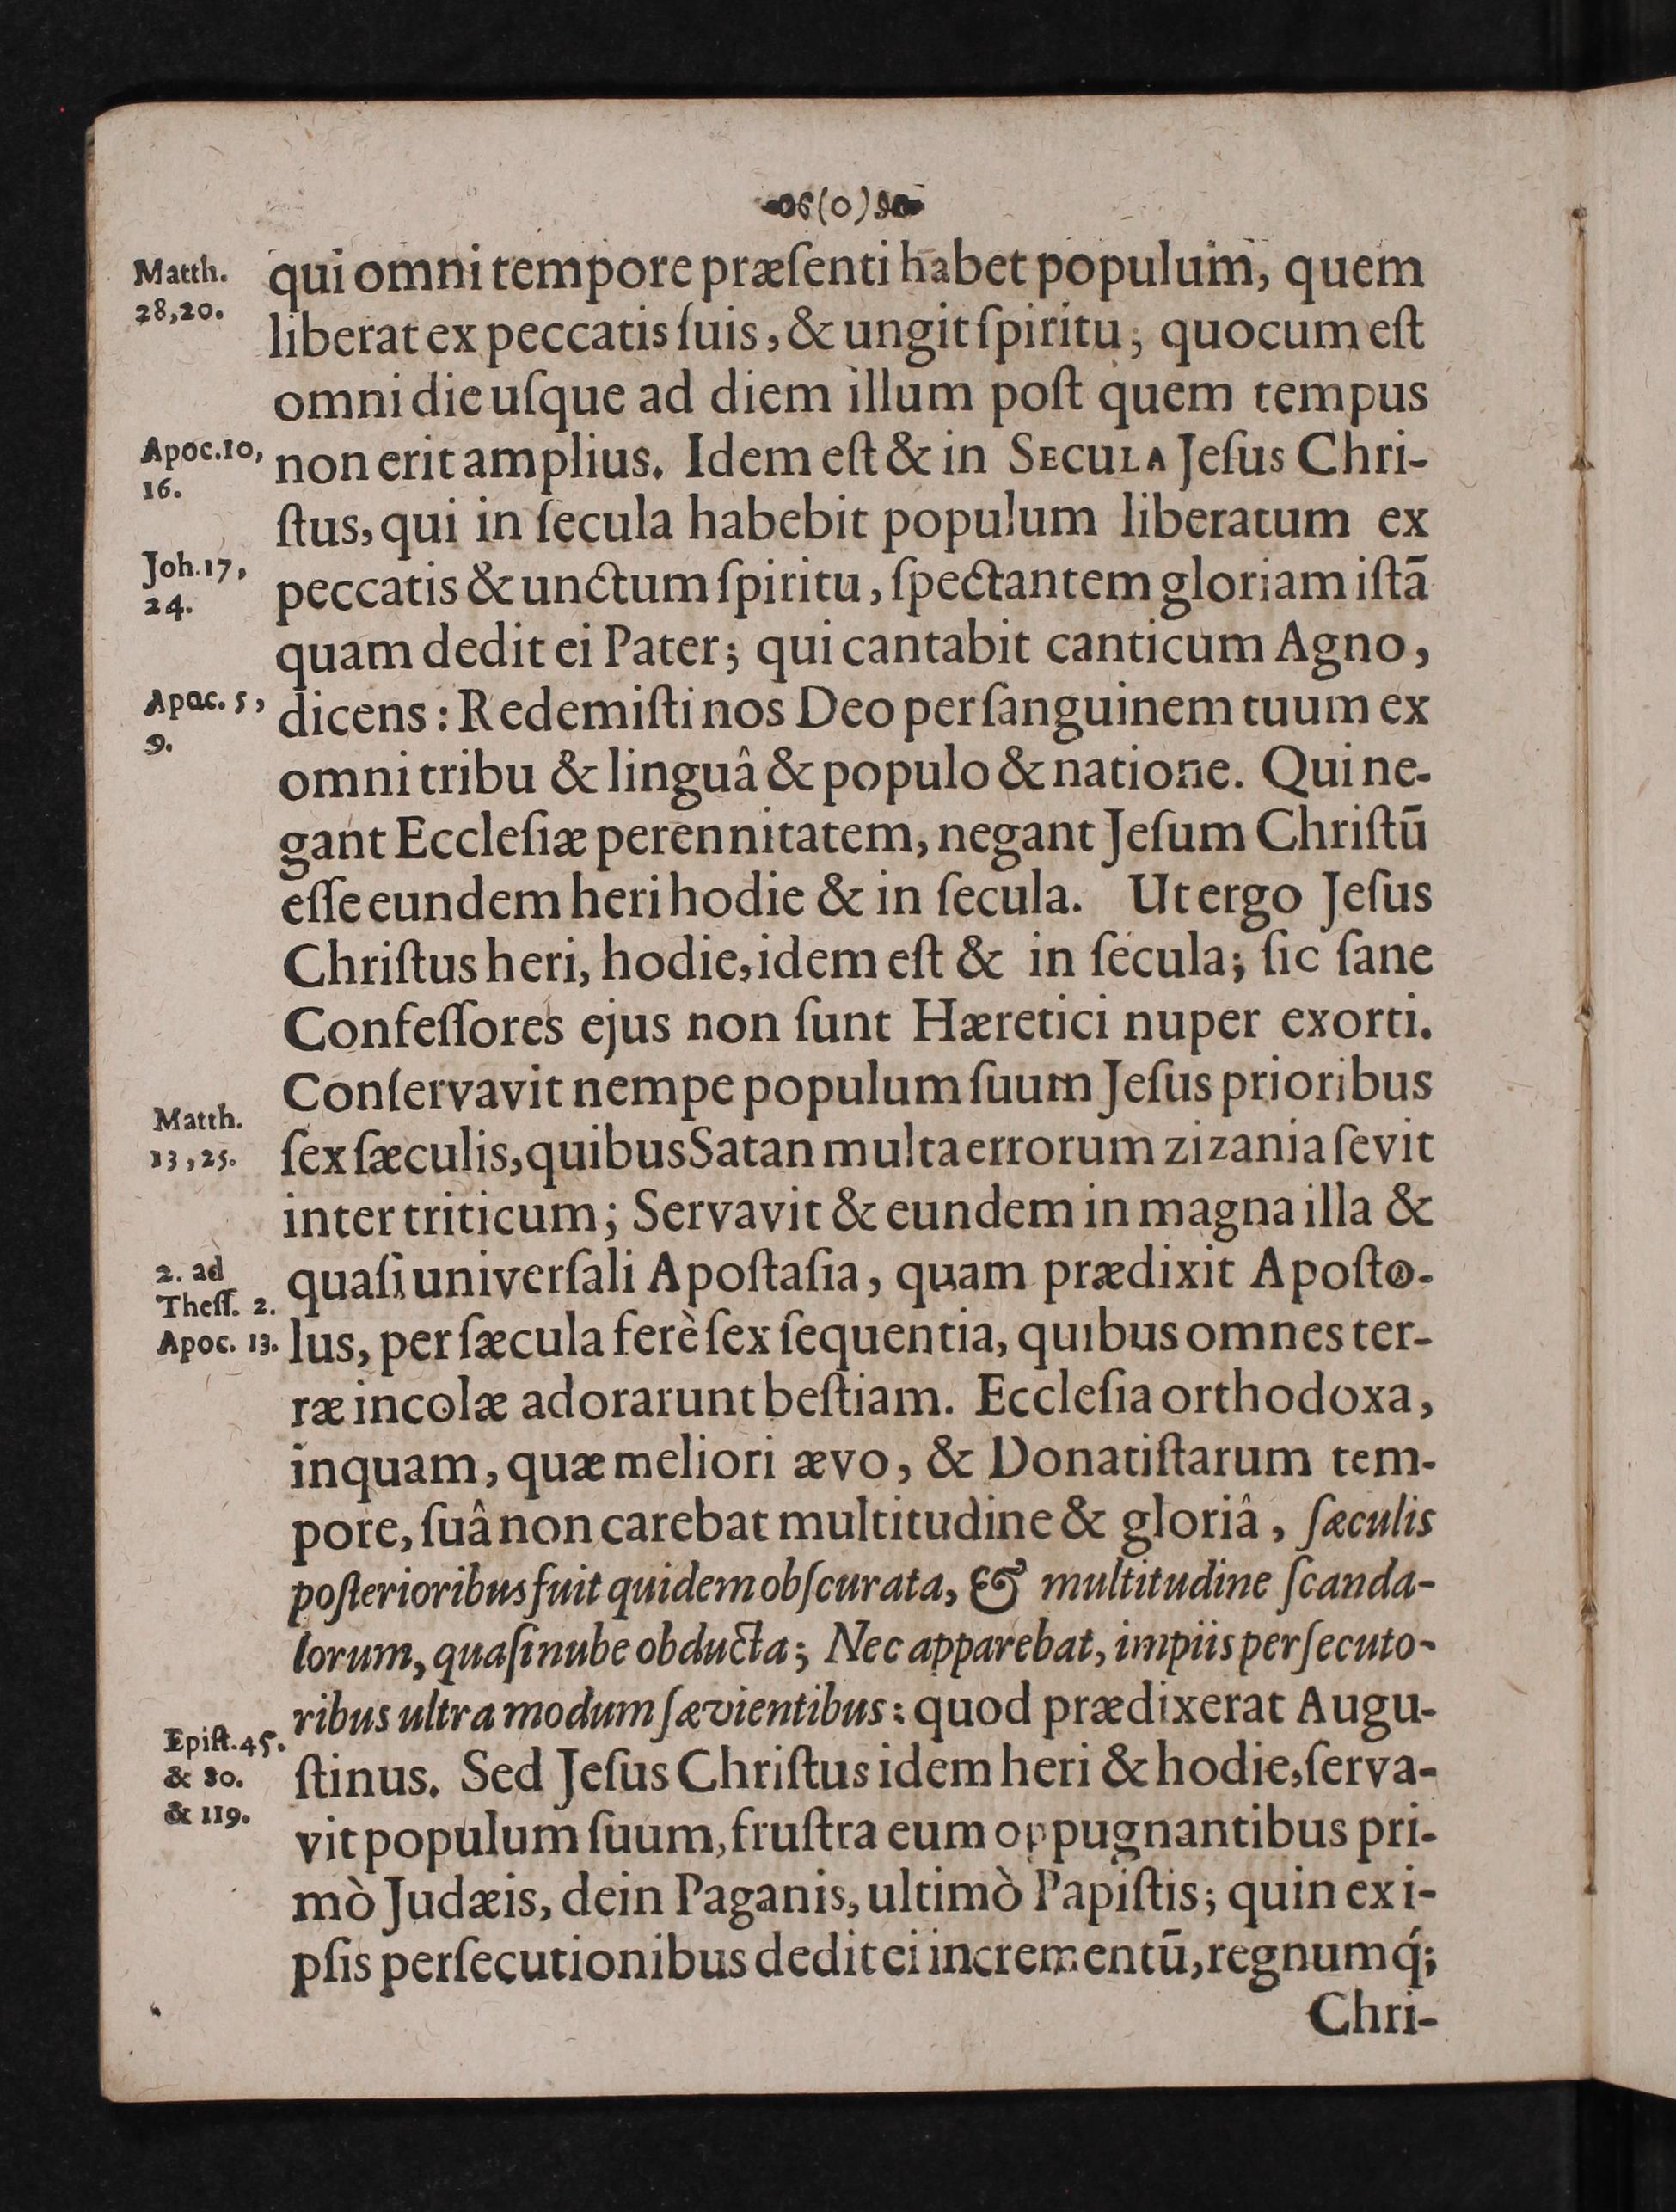 (o)
Matth.
28,20.
qui omni tempore præſenti habet populum, quem
liberat ex peccatis ſuis, & ungit ſpiritu; quocum eſt
omni die uſque ad diem illum poſt quem tempus
Apoc.10,
16.
non erit amplius. Idem eſt & in SECULA Jeſus Chri-
ſtus, qui in ſecula habebit populum liberatum ex
Joh.17,
24.
peccatis & unctum ſpiritu, ſpectantem gloriam iſtā
quam dedit ei Pater; qui cantabit canticum Agno,
Apoc. 5,
9.
dicens: Redemiſti nos Deo per ſanguinem tuum ex
omni tribu & linguâ & populo & natione. Qui ne-
gant Eccleſiæ perennitatem, negant Jeſum Chriſtū
eſſe eundem heri hodie & in ſecula. Ut ergo Jeſus
Chriſtus heri, hodie, idem eſt & in ſecula; ſic ſane
Confeſſores ejus non ſunt Hæretici nuper exorti.
Conſervavit nempe populum ſuum Jeſus prioribus
Matth.
13,25.
ſex ſæculis, quibus Satan multa errorum zizania ſevit
inter triticum; Servavit & eundem in magna illa &
2. ad
Theſſ. 2.
quaſi univerſali Apoſtaſia, quam prædixit Apoſto-
Apoc. 13.
lus, per ſæcula ferè ſex ſequentia, quibus omnes ter-
ræ incolæ adorarunt beſtiam. Eccleſia orthodoxa,
inquam, quæ meliori ævo, & Donatiſtarum tem-
pore, ſuâ non carebat multitudine & gloriâ, ſæculis
poſterioribus fuit quidem obſcurata, & multitudine ſcanda-
lorum, quaſi nube obducta; Nec apparebat, impiis perſecuto-
ribus ultra modum ſævientibus: quod prædixerat Augu-
Epiſt.45.
& 80.
& 119.
ſtinus. Sed Jeſus Chriſtus idem heri & hodie, ſerva-
vit populum ſuum, fruſtra eum oppugnantibus pri-
mò Judæis, dein Paganis, ultimò Papiſtis; quin ex i-
pſis perſecutionibus dedit ei incrementū, regnumq́;
Chri-